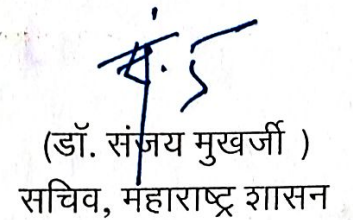 (डॉ. संजय मुखर्जी )
सचिव, महाराष्ट्र शासन